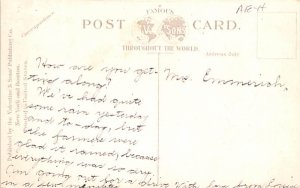 A-E-H
FAMOUS
POST CARD.
THROUGHOUT THE WORLD.
Address Only
Published by the Valentine & Sons' Publishing Co.
New York and Boston.
Printed in United States
Correspondence.
Mr. Emmerich,
How are you get-
ting along?
We've had quite
some rain yesterday
and to-day, but
the farmers were
glad it rained, because
everything was so dry.
I'm going out for a drive with
in a few minutes